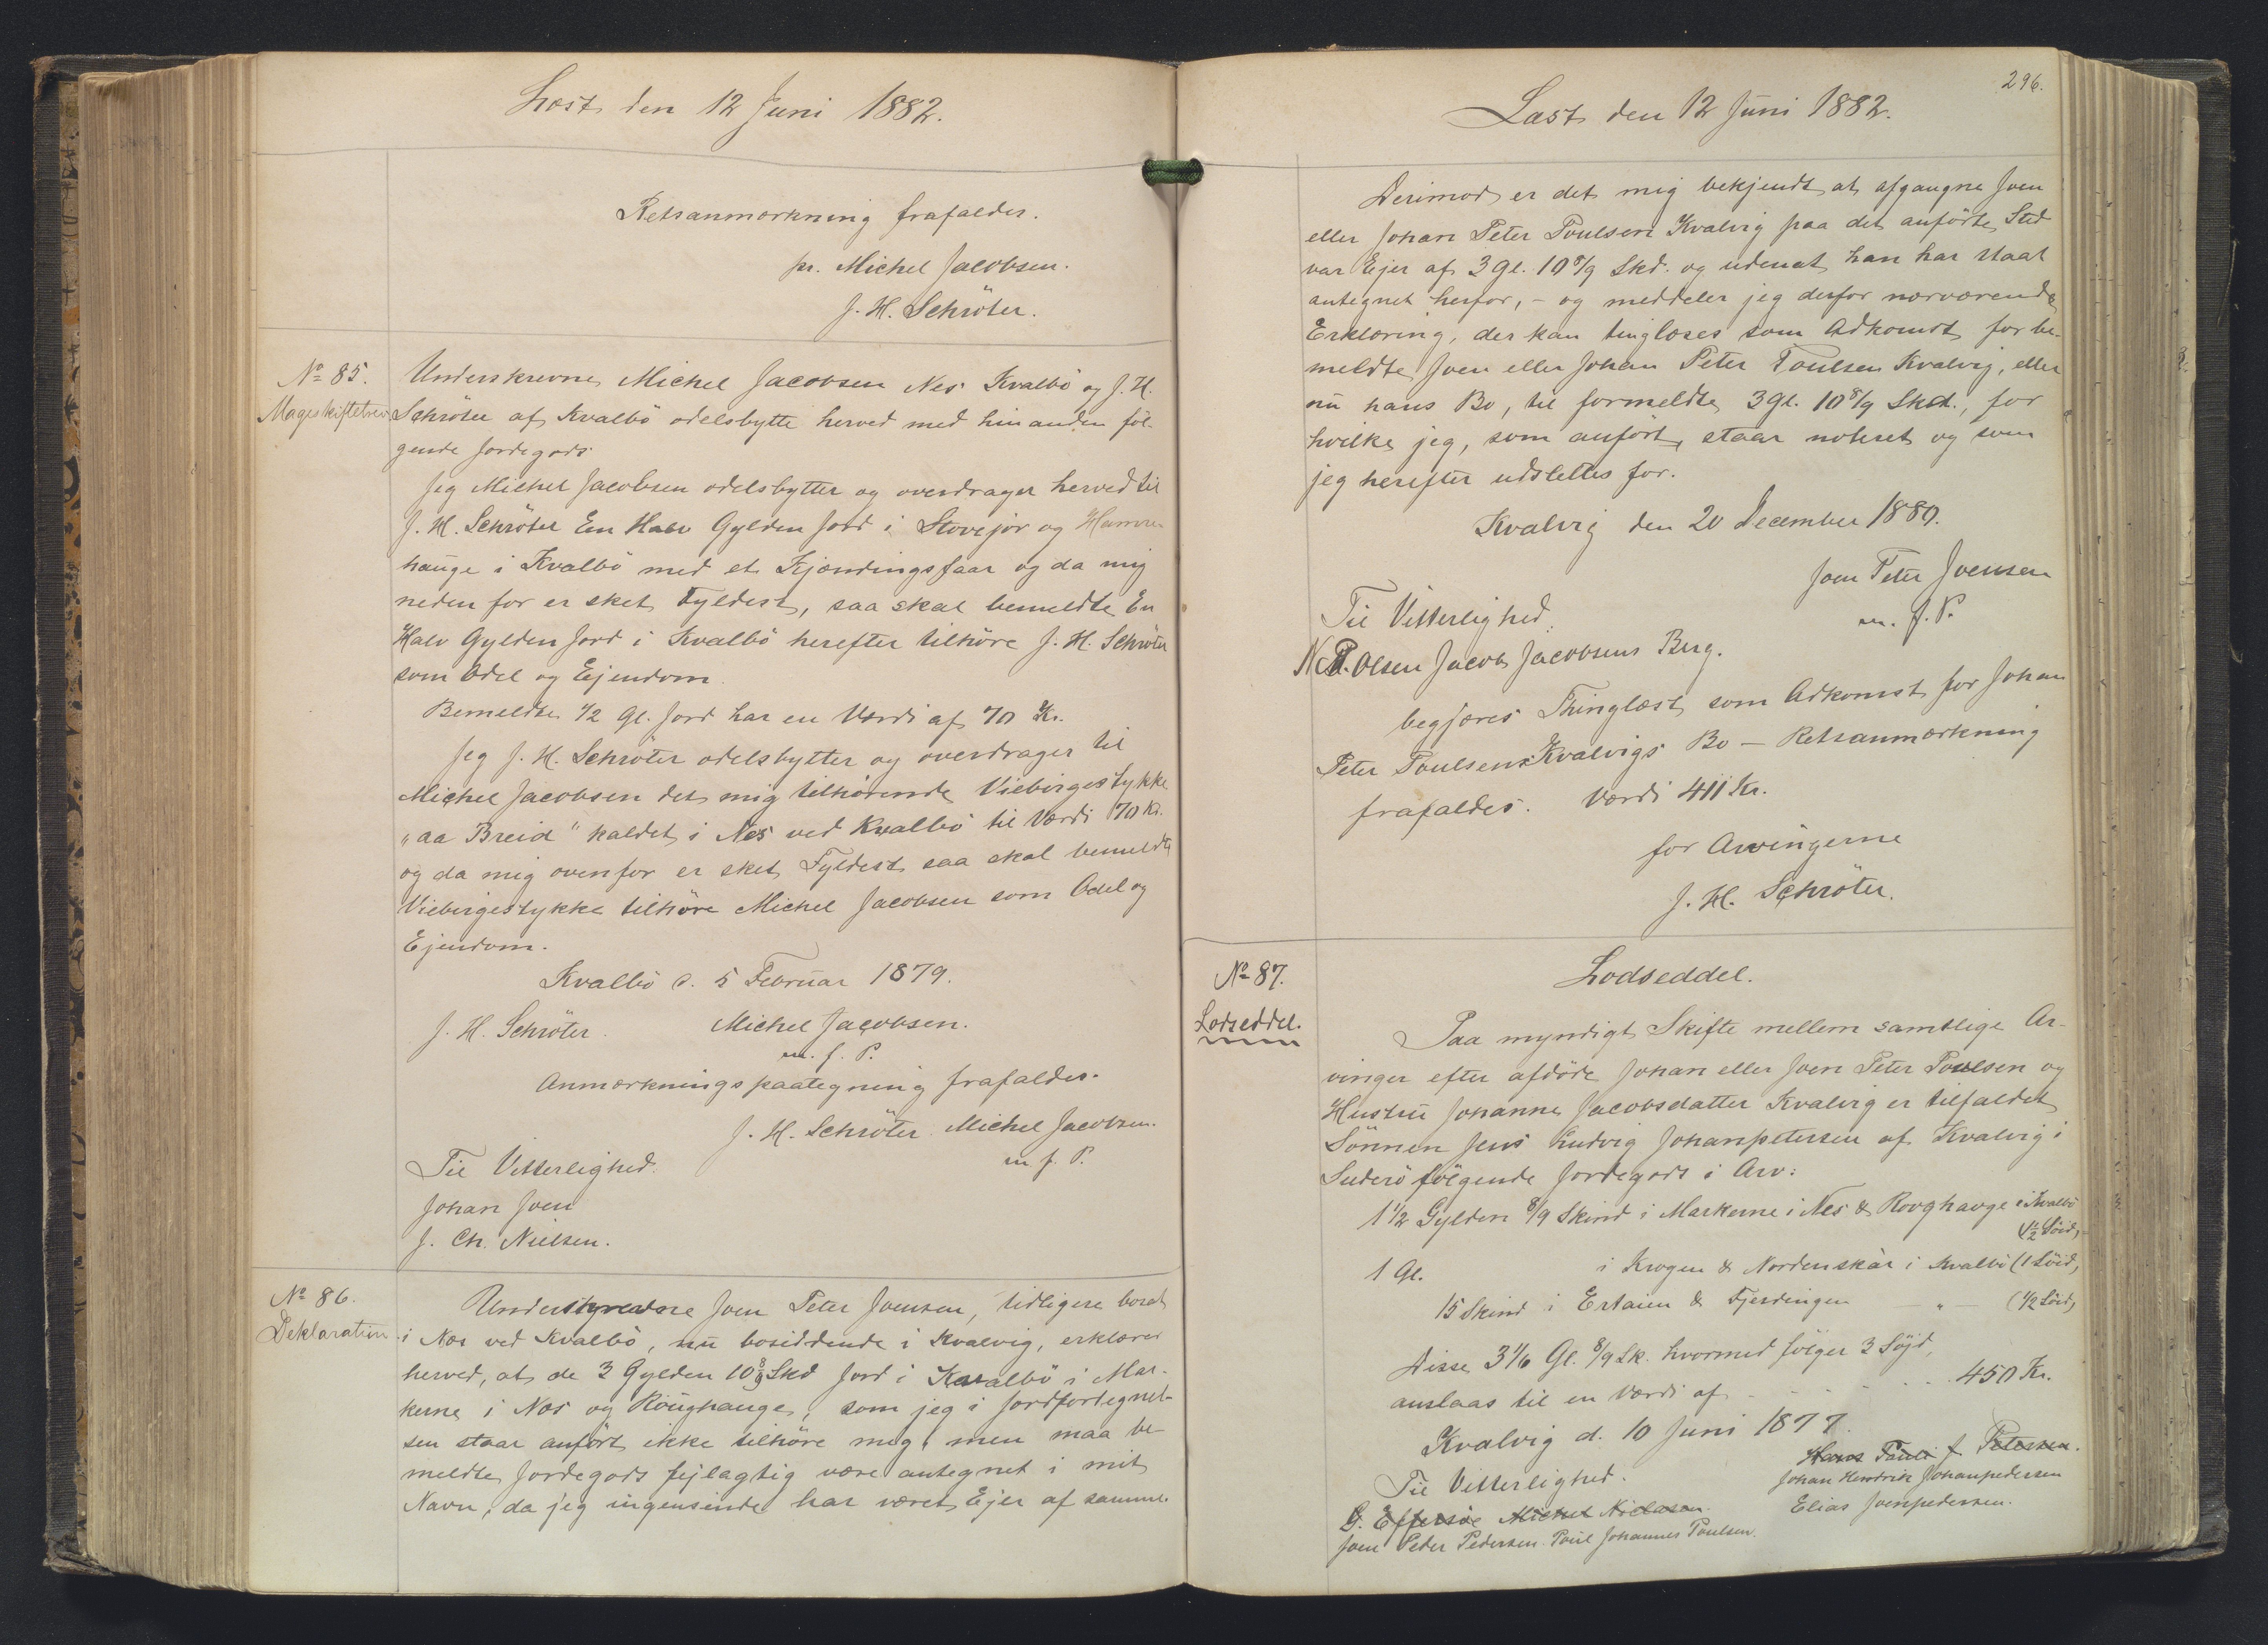 Læst den 12 Juni 1882.
Retsanmærkning frafaldes.
pr. Michel Jacobsen.
J. H. Schröter.
№ 85.
Mageskiftebrev
Underskrevne Michel Jacobsen Nes Kvalbö og J. H.
Schröter af Kvalbö odelsbytte herved med hinanden föl-
gende Jordegods
Jeg Michel Jacobsen odelsbytter og overdrager herved til
J. H. Schröter En Halv Gylden Jord i Stovejör og Hamre-
hauge i Kvalbö med et Kjændingsfaar og da mig
neden for er sket Fyldest, saa skal bemeldte En
Halv Gylden Jord i Kvalbö herefter tilhöre J. H. Schröter
som Odel og Ejendom.
Bemeldte 1/2 Gl. Jord har en Værdi af 70 Kr.
Jeg J. H. Schröter odelsbytter og overdrager til
Michel Jacobsen det mig tilhörende Viebirgestykke
"aa Breid" kaldet i Nes ved Kvalbö til Værdi 70 Kr.
og da mig ovenfor er sket Fyldest saa skal bemeldte
Viebirgestykke tilhöre Michel Jacobsen som Odel og
Ejendom.
Kvalbö d. 5 Februar 1879.
J. H. Schröter. Michel Jacobsen.
m. f. P.
Anmærkningspaategning frafaldes.
J. H. Schröter. Michel Jacobsen.
m f. P.
Til Vitterlighed.
Johan Joen
J. Ch. Nielsen.
№ 86.
Deklaration.
Underskrevne Joen Peter Joensen, tidligere boset
i Næs ved Kvalbö, nu bosiddende i Kvalvig, erklærer
herved, at de 3 Gylden 10 8/9 Skd Jord i Kvalbö i Mar-
kerne i Næs og Röughauge, som jeg i Jordfortegnel-
sen staar anfört ikke tilhöre mig, men maa be-
meldte Jordegods fejlagtig være antegnet i mit
Navn, da jeg ingensinde har været Ejer af samme.
296.
Læst den 12 Juni 1882.
Derimod er det mig bekjendt at afgangne Joen
eller Johan Peter Poulsen Kvalvig paa det anförte Sted
var Ejer af 3 Gl. 10 8/9 Skd. og uden at han har staat
antegnet herfor, - og meddeler jeg derfor nærværende
Erklæring, der kan tinglæses som Adkomst for be-
meldte Joen eller Johan Peter Poulsen Kvalvig, eller
nu hans Bo, til formeldte 3 Gl. 10 8/9 Skd., for
hvilke jeg, som anfört, staar noteret og som
jeg herefter udslettes for.
Kvalvig den 20 December 1880.
Joen Peter Joensen
m. f. P.
Til Vitterlighed.
Olsen Jacob Jacobsens Berg.
begjæres Thinglæst som Adkomst for Johan
Peter Poulsens Kvalvigs Bo - Retsanmærkning
frafaldes. Værdi 411 Kr.
for Arvingerne
J. H. Schröter.
№ 87.
Lodseddel.
Lodseddel.
Paa myndigt Skifte mellem samtlige Ar-
vinger efter afdöde Johan eller Joen Peter Poulsen og
Hustru Johanne Jacobsdatter Kvalvig er tilfaldet
Sönnen Jens Ludvig Johanpetersen af Kvalvig i
Suderö fölgende Jordegods i Arv:
1 1/2 Gylden 8/9 Skind i Markerne i Nes & Rovghavge i Kvalbö
(1 1/2 Söid,
1 Gl. i Krogen & Nordenskár i Kvalbö (1 Söid,
15 Skind i Ertaien & Fjerdingen " - (1/2 Söid,
Disse 3 1/6 Gl. 8/9 Sk. hvormed fölger 3 Söjd,
anslaas til en Værdi af - - - - - 450 Kr.
Kvalvig d. 10 Juni 1877.
Til Vitterlighed. Hans Pauli J Petersen.
Johan Hendrik Johanpedersen
G. Effersöe Michel Niclasen. Elias Joenpedersen.
Joen Peder Pedersen. Poul Johannes Poulsen.